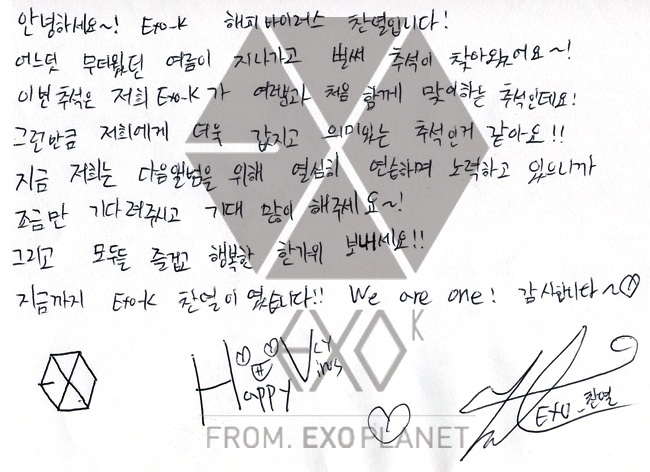 안녕하세요~! EXO-K 해피바이러스 찬열입니다!
어느덧 무더웠던 여름이 지나가고 벌써 추석이 찾아왔어요~!
이번 추석은 저희 EXO-K가 여러분과 처음 함께 맞이하는 추석인데요!
그런만큼 저희에게 더욱 값지고 의미있는 추석인거 같아요!!
지금 저희는 다음앨범을 위해 열심히 연습하며 노력하고 있으니까
조금만 기다려주시고 기대 많이 해주세요~!
그리고 모두들 즐겁고 행복한 한가위 보내세요!!
지금까지 EXO-K 찬열이였습니다!! We are one! 감사합니다~♡
EXO K
Happy
EXO_찬열
FROM. EXOPLANET